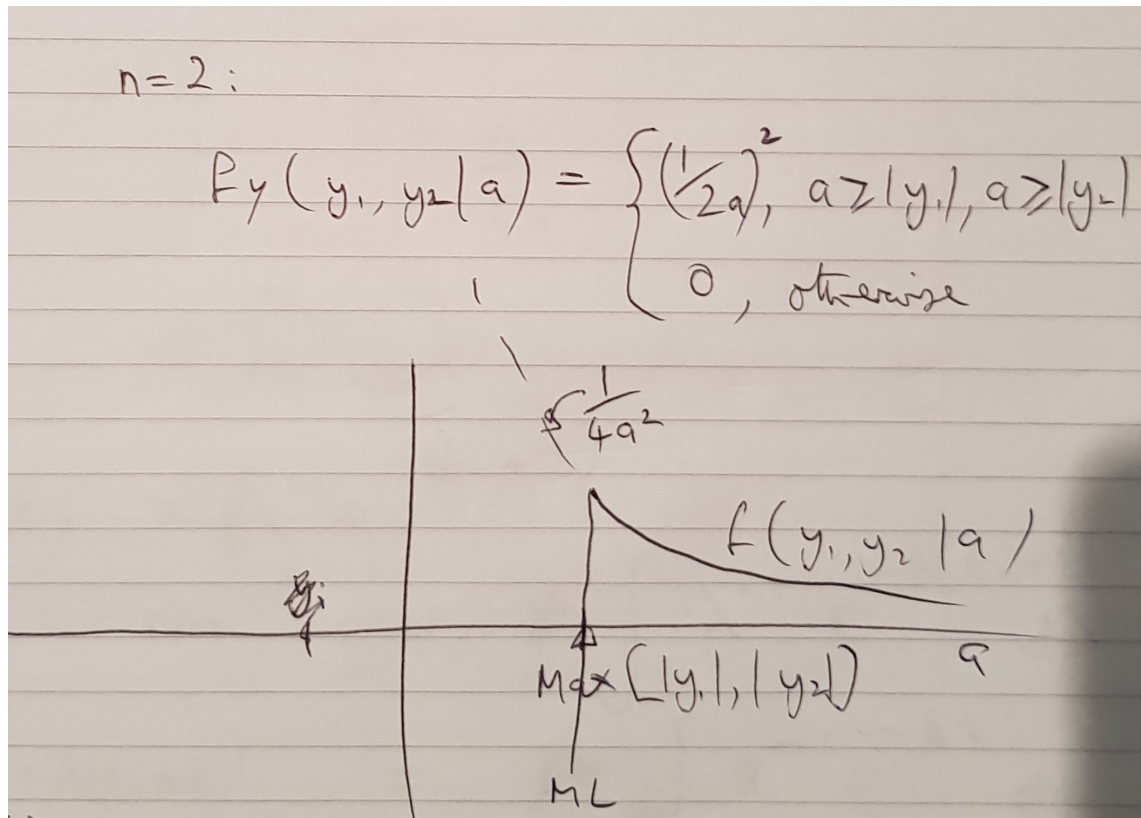 n=2:
fy(y₁, y₂|a) = { (1/2a)², a≥|y₁|, a≥|y₂|
0, otherwise
1/4a²
f(y₁, y₂ |a)
a
Max[|y₁|, |y₂|]
ML